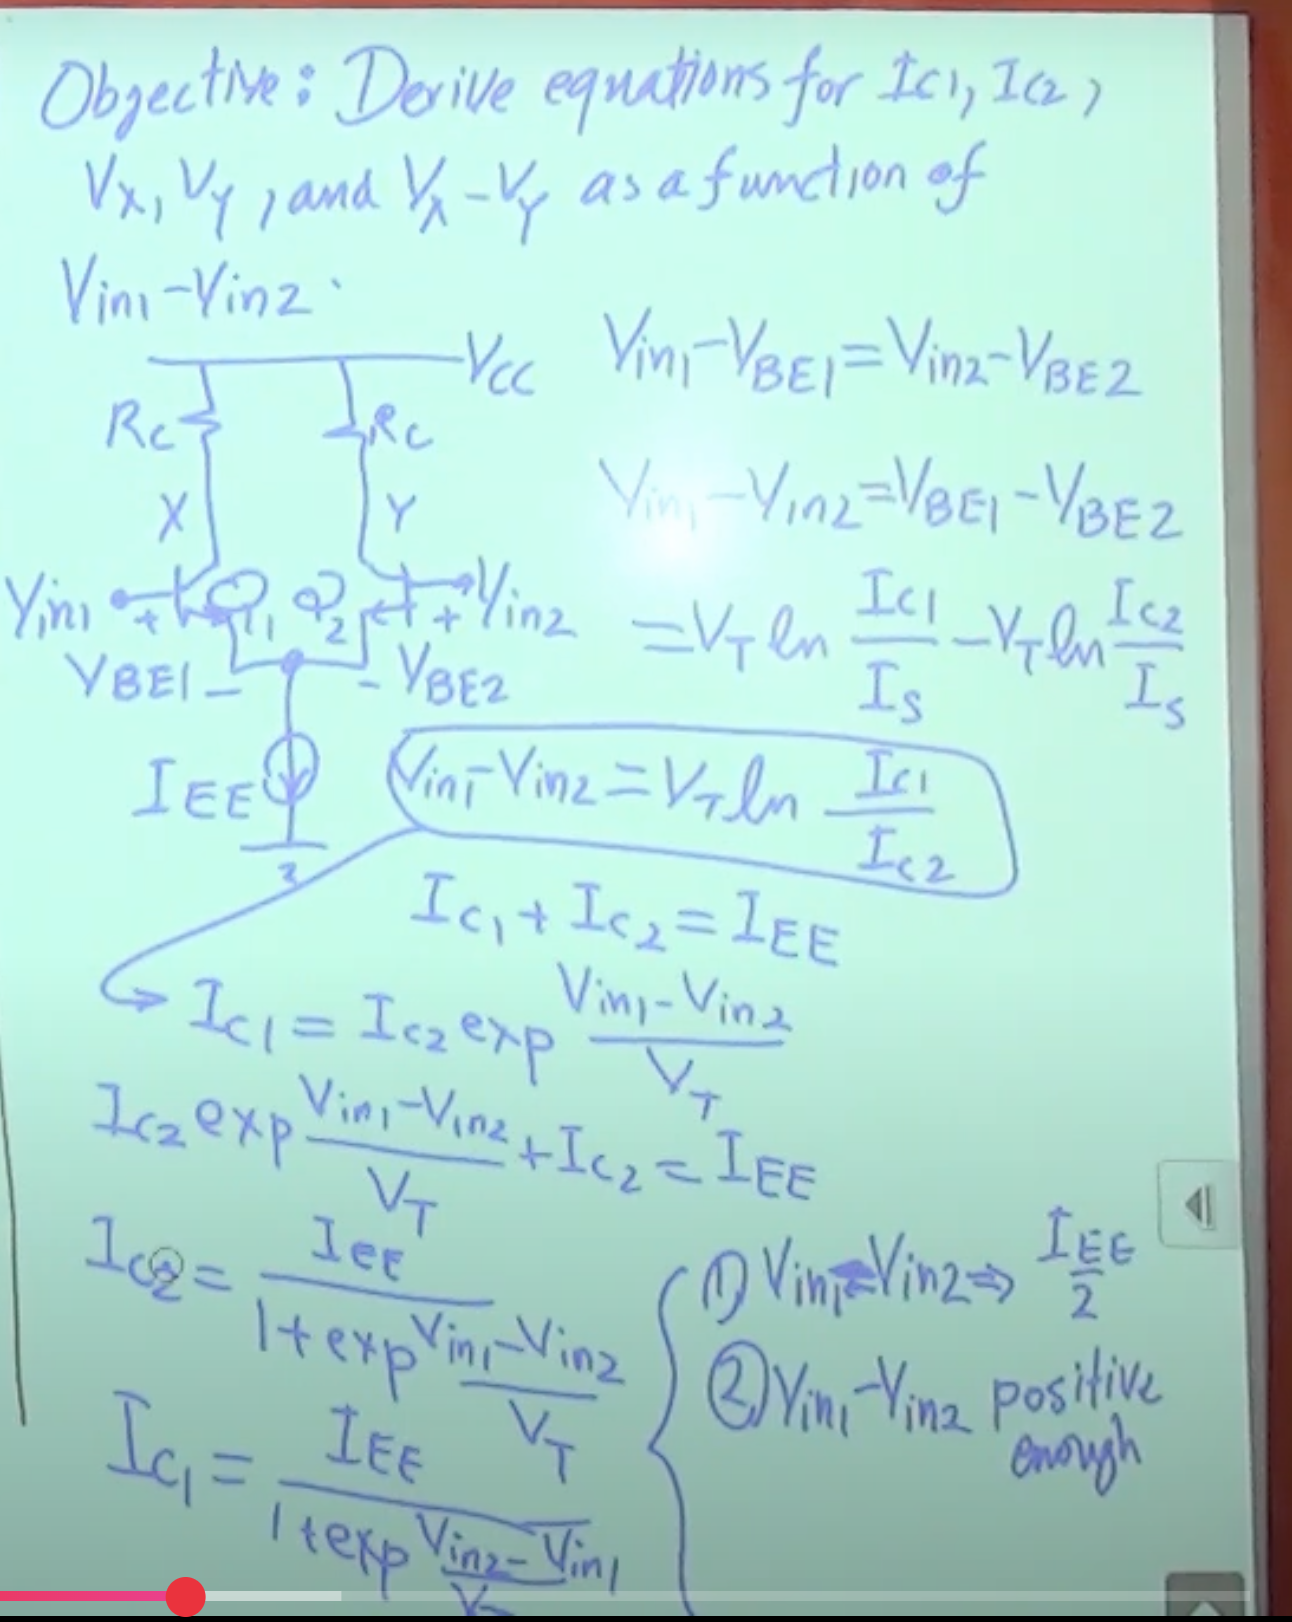 Objective: Derive equations for Ic1, Ic2,
Vx, VY, and Vx-VY as a function of
Vin1-Vin2.
VCC
Rc
Rc
X
Y
Vin1
+
Q1
Q2
+
Vin2
VBE1 -
- VBE2
IEE
Vin1-VBE1=Vin2-VBE2
Vin1-Vin2=VBE1-VBE2
=VT ln Ic1/Is -VT ln Ic2/Is
Vin1-Vin2=VT ln Ic1/Ic2
Ic1+Ic2=IEE
Ic1=Ic2 exp Vin1-Vin2/VT
Ic2 exp Vin1-Vin2/VT +Ic2=IEE
Ic2= IEE/1+exp Vin1-Vin2/VT
Ic1= IEE/1+exp Vin2-Vin1/
① Vin1=Vin2⇒ IEE/2
② Vin1-Vin2 positive
enough